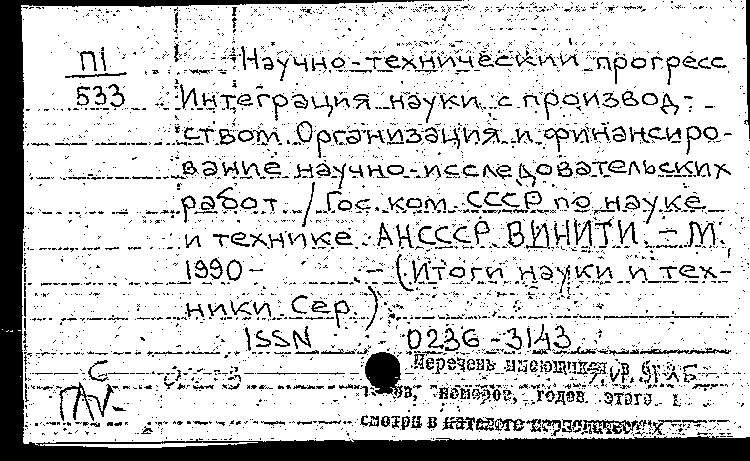 П1
533
Научно-технический прогресс
Интеграция науки с производ-
ством. Организация и финансиро-
вание научно-исследовательских
работ / Гос. ком. СССР по науке
и технике. АН СССР. ВИНИТИ. – М.
1990 –           – (Итоги науки и тех-
ники. Сер.)
ISSN 0236-3143
Перечень имеющихся в
номеров, годов этого
смотри в каталоге периодических